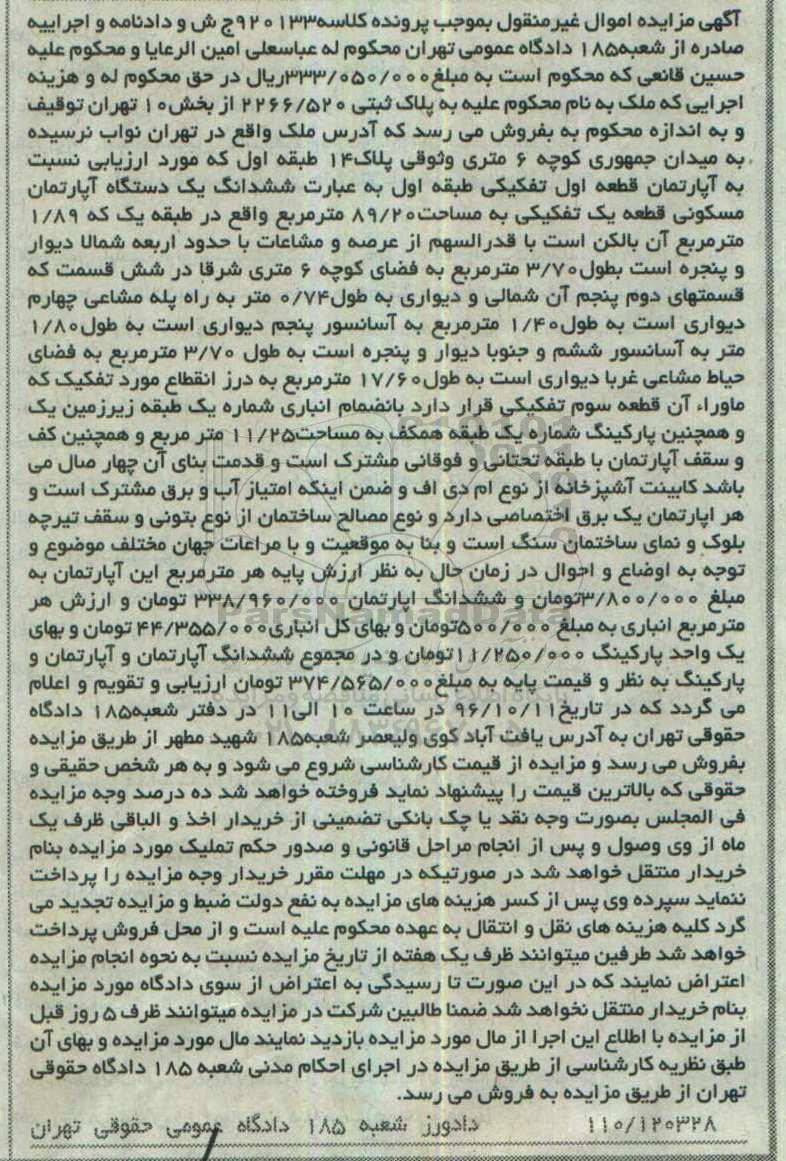 آگهی مزایده اموال غیرمنقول بموجب پرونده کلاسه۹۲۰۱۳۳ج ش و دادنامه و اجراییه
صادره از شعبه۱۸۵ دادگاه عمومی تهران محکوم له عباسعلی امین الرعایا و محکوم علیه
حسین قانعی که محکوم است به مبلغ۳۳۳/۰۵۰/۰۰۰ریال در حق محکوم له و هزینه
اجرایی که ملک به نام محکوم علیه به پلاک ثبتی ۲۲۶۶/۵۲۰ از بخش۱۰ تهران توقیف
و به اندازه محکوم به بفروش می رسد که آدرس ملک واقع در تهران نواب نرسیده
به میدان جمهوری کوچه ۶ متری وثوقی پلاک۱۴ طبقه اول که مورد ارزیابی نسبت
به آپارتمان قطعه اول تفکیکی طبقه اول به عبارت ششدانگ یک دستگاه آپارتمان
مسکونی قطعه یک تفکیکی به مساحت۸۹/۲۰ مترمربع واقع در طبقه یک که ۱/۸۹
مترمربع آن بالکن است با قدرالسهم از عرصه و مشاعات با حدود اربعه شمالا دیوار
و پنجره است بطول۳/۷۰ مترمربع به فضای کوچه ۶ متری شرقا در شش قسمت که
قسمتهای دوم پنجم آن شمالی و دیواری به طول۰/۷۴ متر به راه پله مشاعی چهارم
دیواری است به طول۱/۴۰ مترمربع به آسانسور پنجم دیواری است به طول۱/۸۰
متر به آسانسور ششم و جنوبا دیوار و پنجره است به طول ۳/۷۰ مترمربع به فضای
حیاط مشاعی غربا دیواری است به طول۱۷/۶۰ مترمربع به درز انقطاع مورد تفکیک که
ماوراء آن قطعه سوم تفکیکی قرار دارد بانضمام انباری شماره یک طبقه زیرزمین یک
و همچنین پارکینگ شماره یک طبقه همکف به مساحت۱۱/۲۵ متر مربع و همچنین کف
و سقف آپارتمان با طبقه تحتانی و فوقانی مشترک است و قدمت بنای آن چهار سال می
باشد کابینت آشپزخانه از نوع ام دی اف و ضمن اینکه امتیاز آب و برق مشترک است و
هر اپارتمان یک برق اختصاصی دارد و نوع مصالح ساختمان از نوع بتونی و سقف تیرچه
بلوک و نمای ساختمان سنگ است و بنا به موقعیت و با مراعات جهان مختلف موضوع و
توجه به اوضاع و احوال در زمان حال به نظر ارزش پایه هر مترمربع این آپارتمان به
مبلغ ۳/۸۰۰/۰۰۰تومان و ششدانگ اپارتمان ۳۳۸/۹۶۰/۰۰۰ تومان و ارزش هر
مترمربع انباری به مبلغ ۵۰۰/۰۰۰تومان و بهای کل انباری۴۴/۳۵۵/۰۰۰ تومان و بهای
یک واحد پارکینگ ۱۱/۲۵۰/۰۰۰تومان و در مجموع ششدانگ آپارتمان و آپارتمان و
پارکینگ به نظر و قیمت پایه به مبلغ۳۷۴/۵۶۵/۰۰۰ تومان ارزیابی و تقویم و اعلام
می گردد که در تاریخ۹۶/۱۰/۱۱ در ساعت ۱۰ الی۱۱ در دفتر شعبه۱۸۵ دادگاه
حقوقی تهران به آدرس یافت آباد کوی ولیعصر شعبه۱۸۵ شهید مطهر از طریق مزایده
بفروش می رسد و مزایده از قیمت کارشناسی شروع می شود و به هر شخص حقیقی و
حقوقی که بالاترین قیمت را پیشنهاد نماید فروخته خواهد شد ده درصد وجه مزایده
فی المجلس بصورت وجه نقد یا چک بانکی تضمینی از خریدار اخذ و الباقی ظرف یک
ماه از وی وصول و پس از انجام مراحل قانونی و صدور حکم تملیک مورد مزایده بنام
خریدار منتقل خواهد شد در صورتیکه در مهلت مقرر خریدار وجه مزایده را پرداخت
ننماید سپرده وی پس از کسر هزینه های مزایده به نفع دولت ضبط و مزایده تجدید می
گرد کلیه هزینه های نقل و انتقال به عهده محکوم علیه است و از محل فروش پرداخت
خواهد شد طرفین میتوانند ظرف یک هفته از تاریخ مزایده نسبت به نحوه انجام مزایده
اعتراض نمایند که در این صورت تا رسیدگی به اعتراض از سوی دادگاه مورد مزایده
بنام خریدار منتقل نخواهد شد ضمنا طالبین شرکت در مزایده میتوانند ظرف ۵ روز قبل
از مزایده با اطلاع این اجرا از مال مورد مزایده بازدید نمایند مال مورد مزایده و بهای آن
طبق نظریه کارشناسی از طریق مزایده در اجرای احکام مدنی شعبه ۱۸۵ دادگاه حقوقی
تهران از طریق مزایده به فروش می رسد.
۱۱۰/۱۲۰۳۲۸ دادورز شعبه ۱۸۵ دادگاه عمومی حقوقی تهران